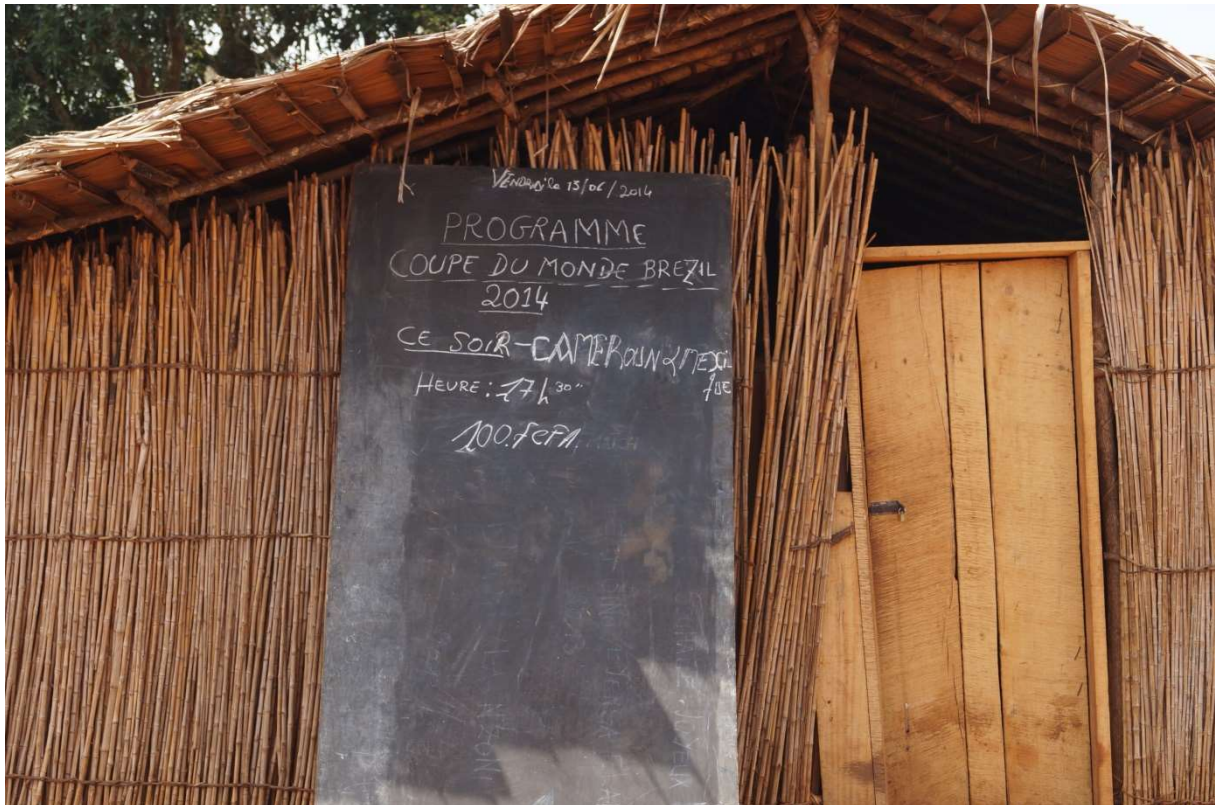 VENDREDI le 13/06/2014
PROGRAMME
COUPE DU MONDE BREZIL
2014
CE SOIR - CAMEROUN & MEXI
QUE
HEURE : 17h 30"
100.FCFA